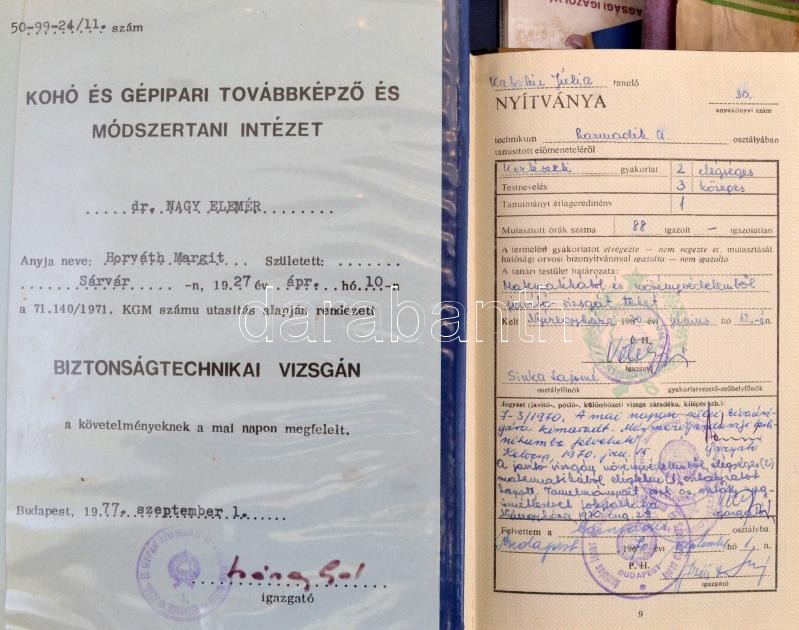 50-99-24/11. szám
KOHÓ ÉS GÉPIPARI TOVÁBBKÉPZŐ ÉS
MÓDSZERTANI INTÉZET
dr. NAGY ELEMÉR
Anyja neve: Horváth Margit Született:
Sárvár -n, 1927 év ápr. hó 10-n
a 71.140/1971. KGM számu utasítás alapján rendezett
BIZTONSÁGTECHNIKAI VIZSGÁN
a követelményeknek a mai napon megfelelt.
Budapest, 1977. szeptember 1.
igazgató
Júlia tanuló
NYÍTVÁNYA
30.
anyakönyvi szám
technikum harmadik a. osztályában
tanusított előmeneteléről
Kertészeti gyakorlat 2 elégséges
Testnevelés 3 közepes
Tanulmányi átlageredmény 1
Mulasztott órák száma 88 igazolt — igazolatlan
A termelési gyakorlatot elvégezte — nem vegezte el, mulasztását
hatósági orvosi bizonyítvánnyal igazolta — nem igazolta
A tanári testület határozata:
Matematikából és Növényvédelemből
javító vizsgát tehet
Kelt 1970 évi június hó 12.-én.
P. H.
igazgató
Sinka
osztályfőnök gyakorlatvezető-műhelyfőnök
Jegyzet (javító-, pótló-, különbözeti vizsga záradéka, kilépés stb.):
7-3/1970. A mai napon
felvehető
1970. jun. 15
igazgató
A javító vizsgán növényvédelemből elégséges (2)
matematikából elégtelen (1) osztályzatot
kapott. Tanulmányait csak az osztály
ismétlésével folytathatja.
1970. aug. 29
Felvettem a harmadik osztályba.
Budapest 1970 évi szeptember hó 1 n.
P. H.
igazgató
BUDAPEST
9
darabanth